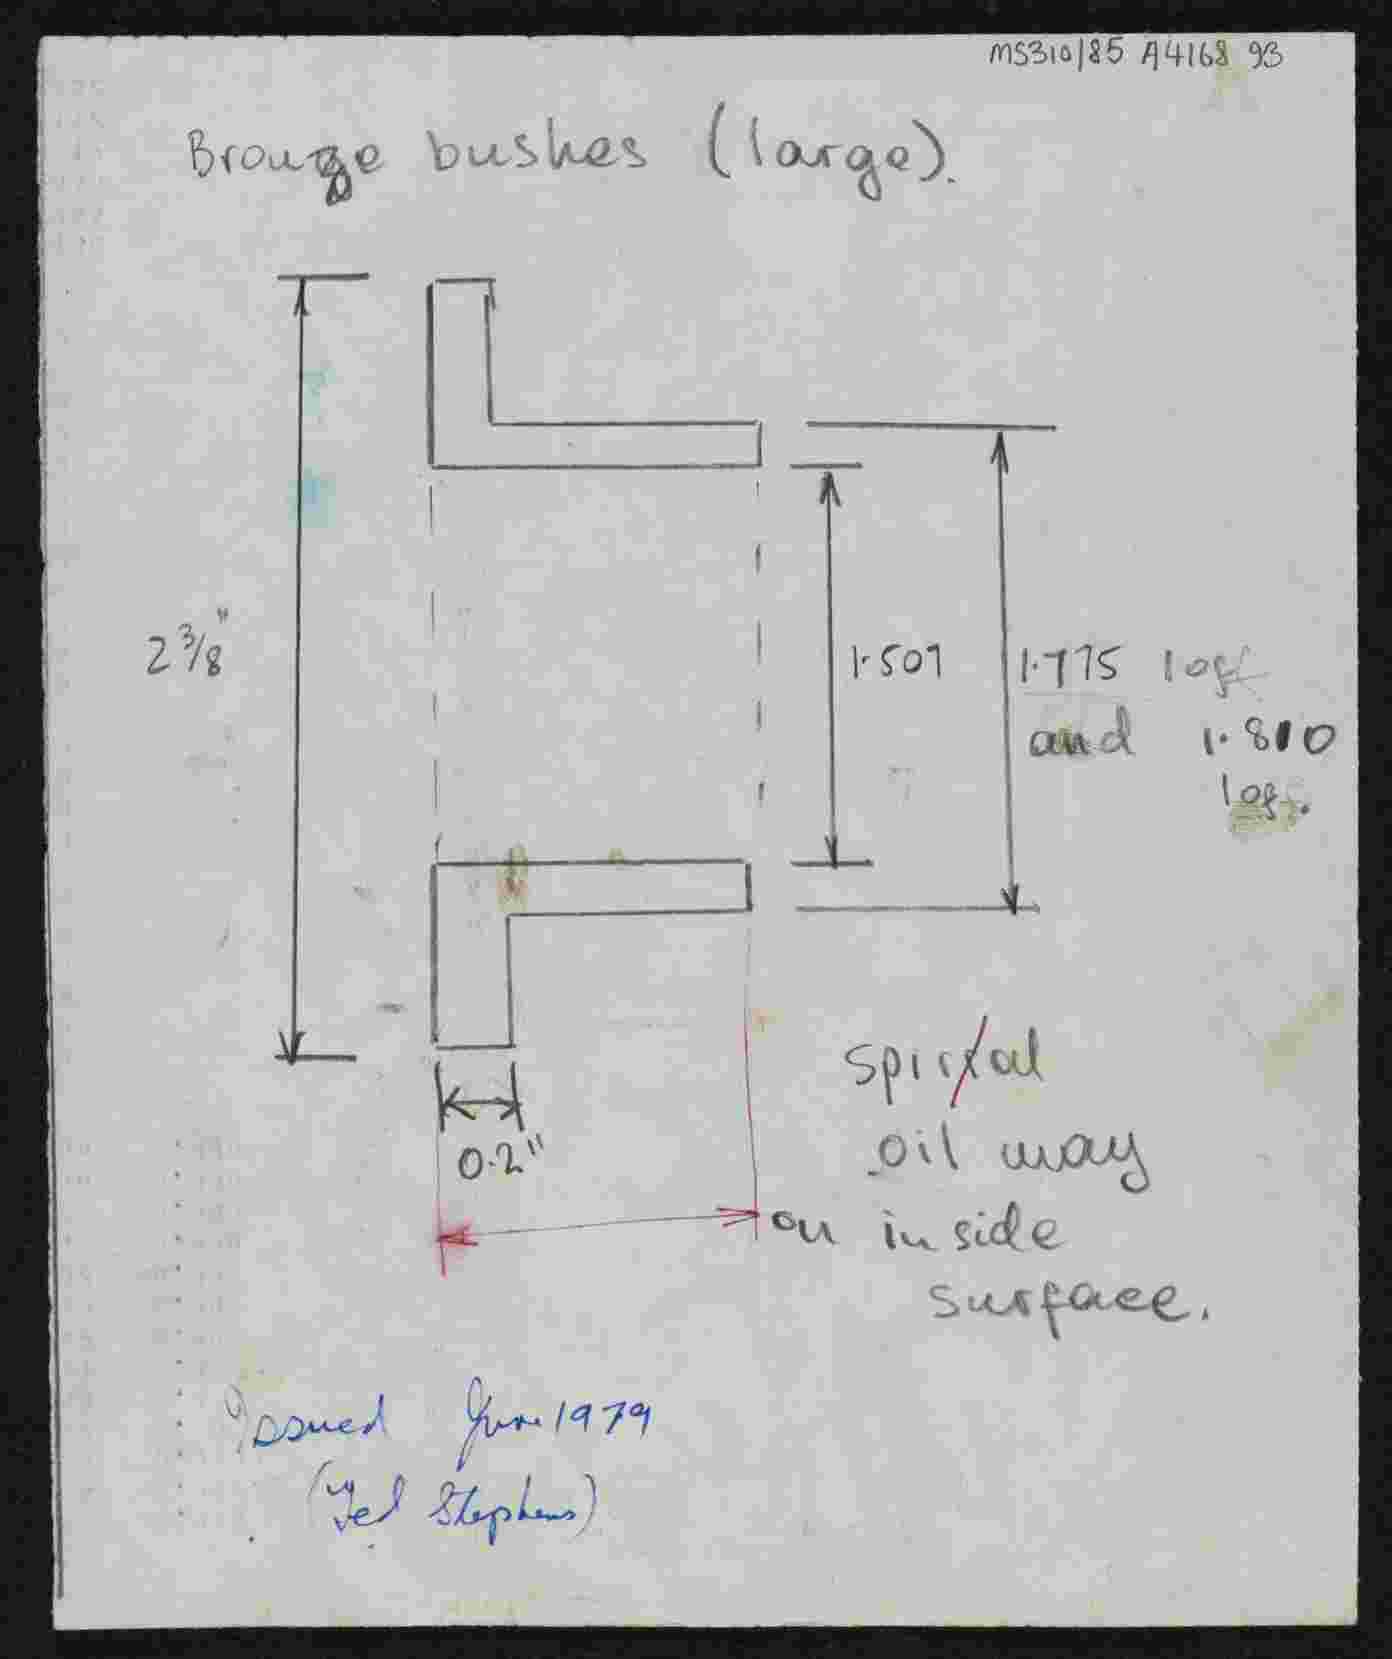 MS310/85 A4168 93
Bronze bushes (large).
2 3/8"
1.507
1.775 1 off
and 1.810
1 off.
0.2"
spiral
oil way
on inside
surface.
Issued June 1979
(Ted Stephens)